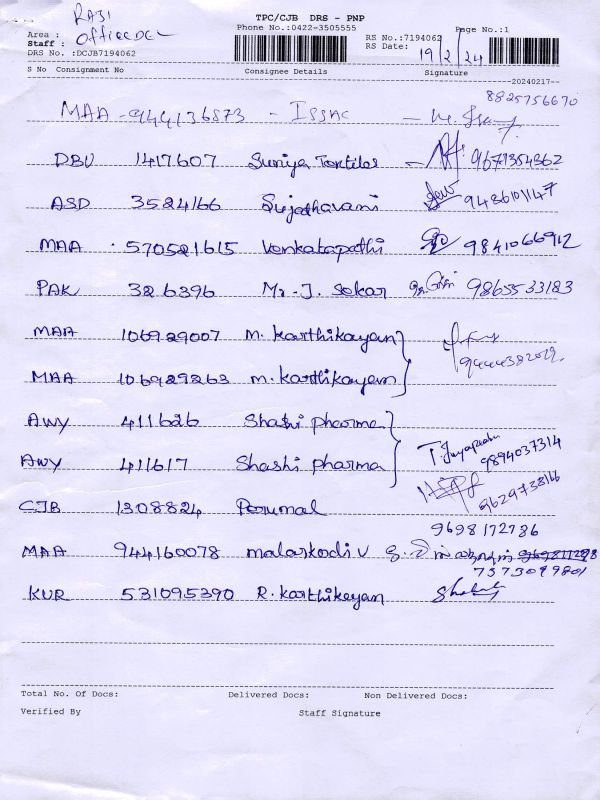 TPC/CJB DRS - PNP
RAJI
Phone No.:0422-3505555
Page No.:1
Area : Office DEL
RS No.:7194062
Staff :
RS Date: 19/2/24
DRS No. :DCJB7194062
S No Consignment No Consignee Details Signature
20240217
8825756670
MAA - 944136873 - ISSAC
DBU 1417607 Suriya Textiles 9671354362
ASD 3524166 Sujathavani 9486101147
MAA 570521615 Venkatapathi 9841066912
PAK 326396 Mr. J. Sekar 9865533183
MAA 106929007 m. karthikayan
MAA 106929263 m. karthikayan
AWY 411626 Shashi pharma
AWY 411617 Shashi pharma 9894037314
CJB 1308824 Perumal 9629738166
9698172786
MAA 944160078 malarkodi v
7373099801
KUR 531095390 R. karthikeyan
Total No. Of Docs: Delivered Docs: Non Delivered Docs:
Verified By Staff Signature